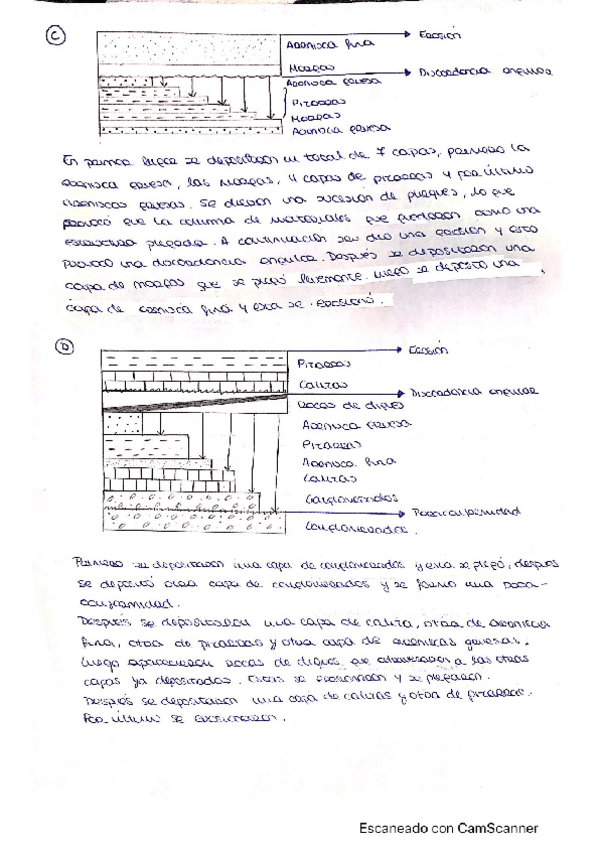 C
Arenisca fina
Erosión
Margas
Discordancia angular
Arenisca gruesa
Pizarras
Margas
Arenisca gruesa
En primer lugar se depositaron un total de 7 capas, primero la
arenisca gruesa, las margas, 4 capas de pizarras y por último
areniscas gruesas. Se dieron una sucesión de pliegues, lo que
provocó que la columna de materiales que quedaron como una
estructura plegada. A continuación se dio una erosión y esto
provocó una discordancia angular. Después se depositaron una
capa de margas que se plegó levemente. Luego se depositó una
capa de arenisca fina y esta se erosionó.
D
Erosión
Pizarras
Calizas
Discordancia angular
Rocas de diques
Arenisca gruesa
Pizarras
Arenisca fina
Calizas
Conglomerados
Paraconformidad
Conglomerados
Primero se depositaron una capa de conglomerados y esta se plegó, después
se depositó otra capa de conglomerados y se formó una
conformidad.
Después se depositaron una capa de caliza, otra de arenisca
fina, otra de pizarras y otra capa de areniscas gruesas.
Luego aparecieron rocas de diques que atravesaron a las otras
capas ya depositadas. Estas se erosionaron y se plegaron.
Después se depositaron una capa de calizas y otra de pizarras.
Por último se erosionaron.
Escaneado con CamScanner